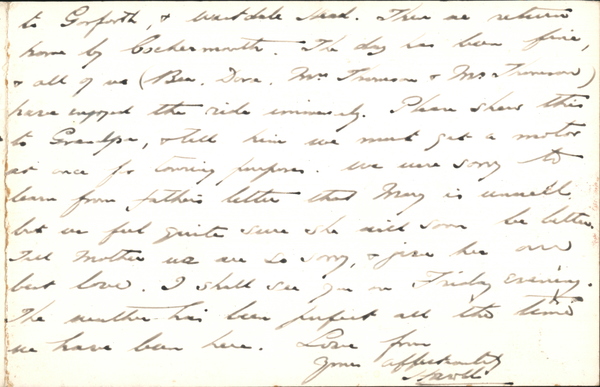 to Gosforth, & Wastdale Head. Then we return
home by Cockermouth. The day has been fine,
& all of us (Bea. Dora. Mrs Thomson & Mr Thomson)
have enjoyed the ride immensely. Please show this
to Grandpa, & tell him we must get a motor
at once for touring purposes. We were sorry to
learn from father's letter that May is unwell.
but we feel quite sure she will soon be better.
Tell Mother we are so sorry, & give her our
best love. I shall see you on Friday evening.
The weather has been perfect all the time
we have been here. Love from
Yours affectionately